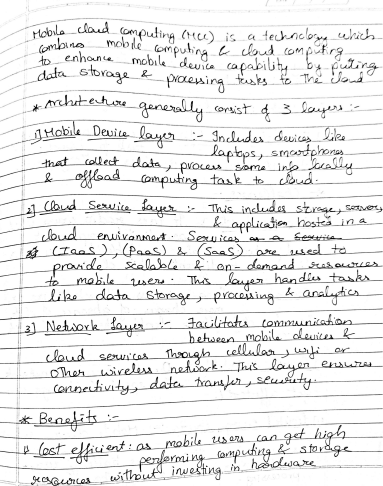 Mobile cloud computing (MCC) is a technology which
combines mobile computing & cloud computing
to enhance mobile device capability by putting
data storage & processing tasks to the cloud
* Architecture generally consist of 3 layers :-
1] Mobile Device layer :- Includes devices like
laptops, smartphones
that collect data, process some info locally
& offload computing task to cloud.
2] Cloud Service Layer :- This includes storage, servers
& application hosted in a
cloud environment. Services as a Service
(IaaS), (PaaS) & (SaaS) are used to
provide scalable & on-demand resources
to mobile users. This layer handles tasks
like data storage, processing & analytics
3] Network Layer :- Facilitates communication
between mobile devices &
cloud services through cellular, wifi or
other wireless network. This layer ensures
connectivity, data transfer, security.
* Benefits :-
Cost efficient : as mobile users can get high
performing computing & storage
resources without investing in hardware